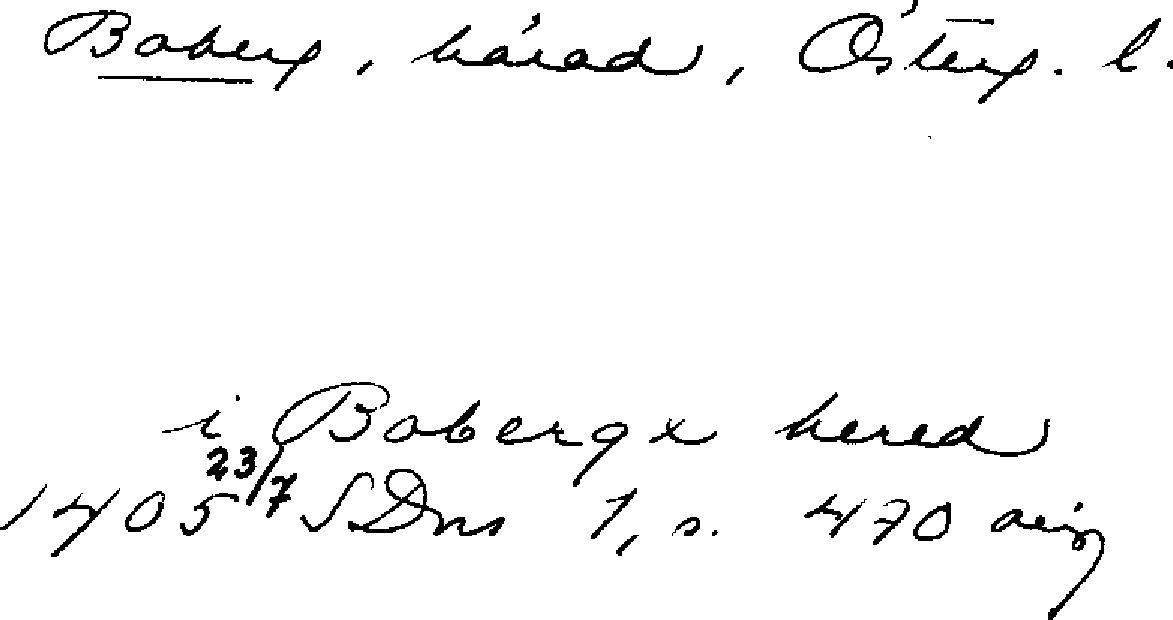 Boberg, härad, Österg. l.
i Bobergx hered
1405 23/7 SDns 1, s. 470 orig